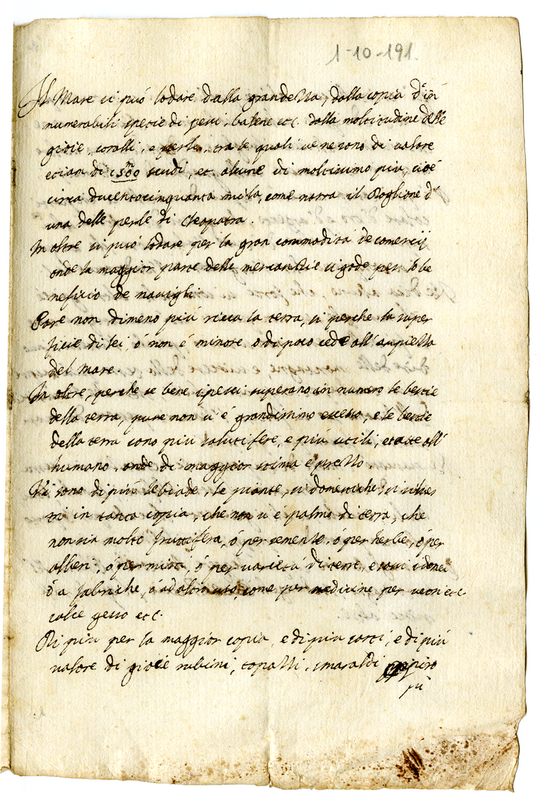 1-10-191.
Il Mare si può lodare dalla grandezza, dalla copia d'in
numerabili specie di pesci, balene etc. dalla moltitudine delle
gioie, coralli, e perle, tra le quali ve ne sono di valore
etian di 1500 scudi, et alcune di moltissimo più, cioè
circa ducentocinquanta mila, come narra il d'
una delle perle di Cleopatra.
In oltre si può lodare per la gran commodità de comercij
onde la maggior parte delle mercantie si gode per lo be
nefizio de navigli.
Pare non dimeno più ricca la terra, si perche la super
ficie di lei o non è minore o di poco cede all'ampiezza
del mare.
In oltre, perche se bene i pesci superano in numero le bestie
della terra, pure non vi è grandissimo eccesso, e le bestie
della terra sono più salutifere, e più utili, all'
humano, onde di maggior stima e prezzo
Vi sono di più le biade, le piante, si domestiche, si silves
tri in tanta copia, che non vi è palmo di terra, che
non sia molto fruttifera, o per semente, o per herbe, o per
alberi, o per minie, o per varietà di terre, e sassi idonei
ò a fabriche, ò ad altri usi, come per medicine per vasi etc
calce gesso etc.
Di più per la maggior copia, e di più sorti, e di più
valore di gioie rubini, topazzi, smaraldi
più